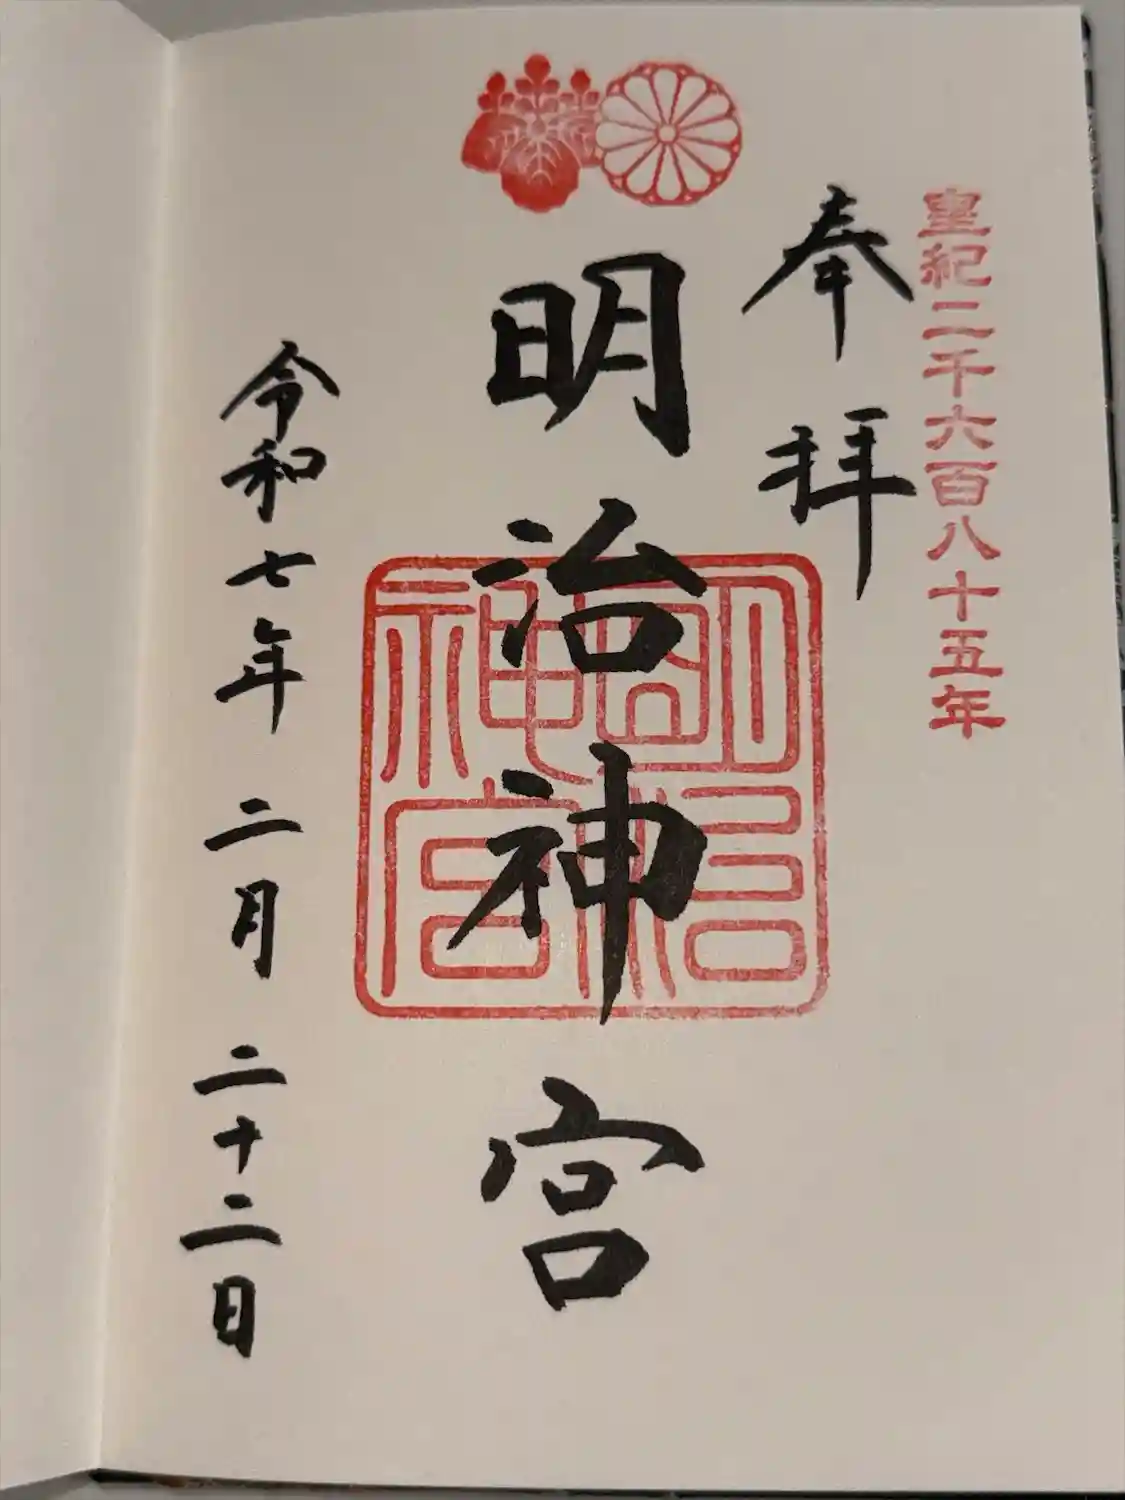 皇紀二千六百八十五年
奉拝
明治神宮
明治神宮
令和七年 二月 二十二日